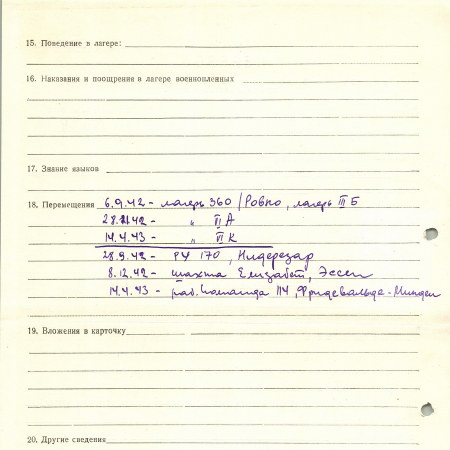 15. Поведение в лагере:
16. Наказания и поощрения в лагере военнопленных
17. Знание языков
18. Перемещения 6.9.42 - лагерь 360 / Ровно, лагерь III Б
42 - " VI А
14.4.43 - " VI К
28.9.42 - РУ 170, Нидерезар
8.12.42 - шахта Елизабет, Эссен
14.4.43 - раб. команда 114, Фридевальде-Минден
19. Вложения в карточку
20. Другие сведения